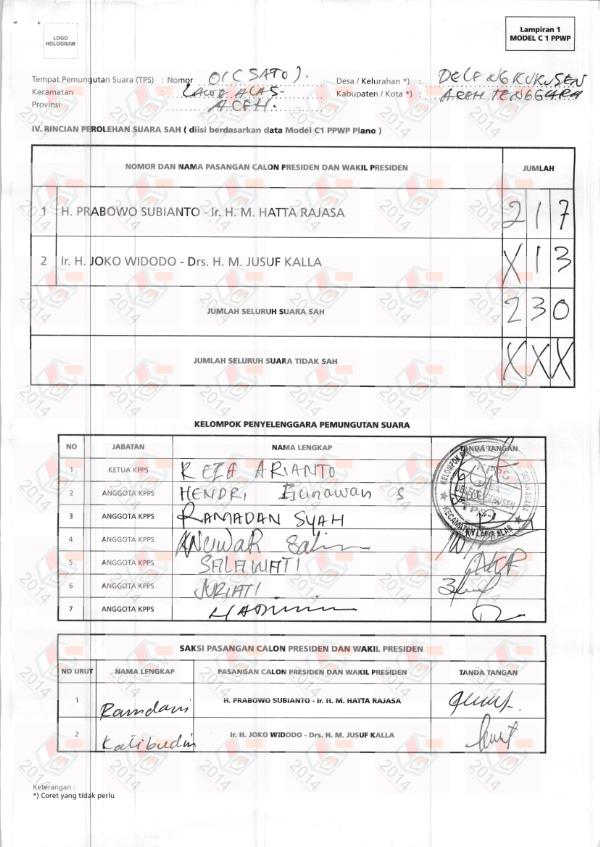 LOGO
HOLOGRAM
Lampiran 1
MODEL C 1 PPWP
Tempat Pemungutan Suara (TPS) : Nomor 01 (SATU). Desa / Kelurahan *) : DELENGKUKUSEN
Kecamatan : LAWE ALAS. Kabupaten / Kota *) : ACEH TENGGARA
Provinsi : ACEH.
IV. RINCIAN PEROLEHAN SUARA SAH ( diisi berdasarkan data Model C1 PPWP Plano )
NOMOR DAN NAMA PASANGAN CALON PRESIDEN DAN WAKIL PRESIDEN JUMLAH
1 H. PRABOWO SUBIANTO - Ir. H. M. HATTA RAJASA 217
2 Ir. H. JOKO WIDODO - Drs. H. M. JUSUF KALLA X13
JUMLAH SELURUH SUARA SAH 230
JUMLAH SELURUH SUARA TIDAK SAH XXX
KELOMPOK PENYELENGGARA PEMUNGUTAN SUARA
NO JABATAN NAMA LENGKAP TANDA TANGAN
1 KETUA KPPS REZA ARIANTO
2 ANGGOTA KPPS HENDRI S
3 ANGGOTA KPPS RAMADAN SYAH
4 ANGGOTA KPPS ANCUWAR Salim
5 ANGGOTA KPPS SALAWATI
6 ANGGOTA KPPS JURIATI
7 ANGGOTA KPPS
SAKSI PASANGAN CALON PRESIDEN DAN WAKIL PRESIDEN
NO URUT NAMA LENGKAP PASANGAN CALON PRESIDEN DAN WAKIL PRESIDEN TANDA TANGAN
1 Ramdani H. PRABOWO SUBIANTO - Ir. H. M. HATTA RAJASA
2 Katibudin Ir. H. JOKO WIDODO - Drs. H. M. JUSUF KALLA
Keterangan :
*) Coret yang tidak perlu